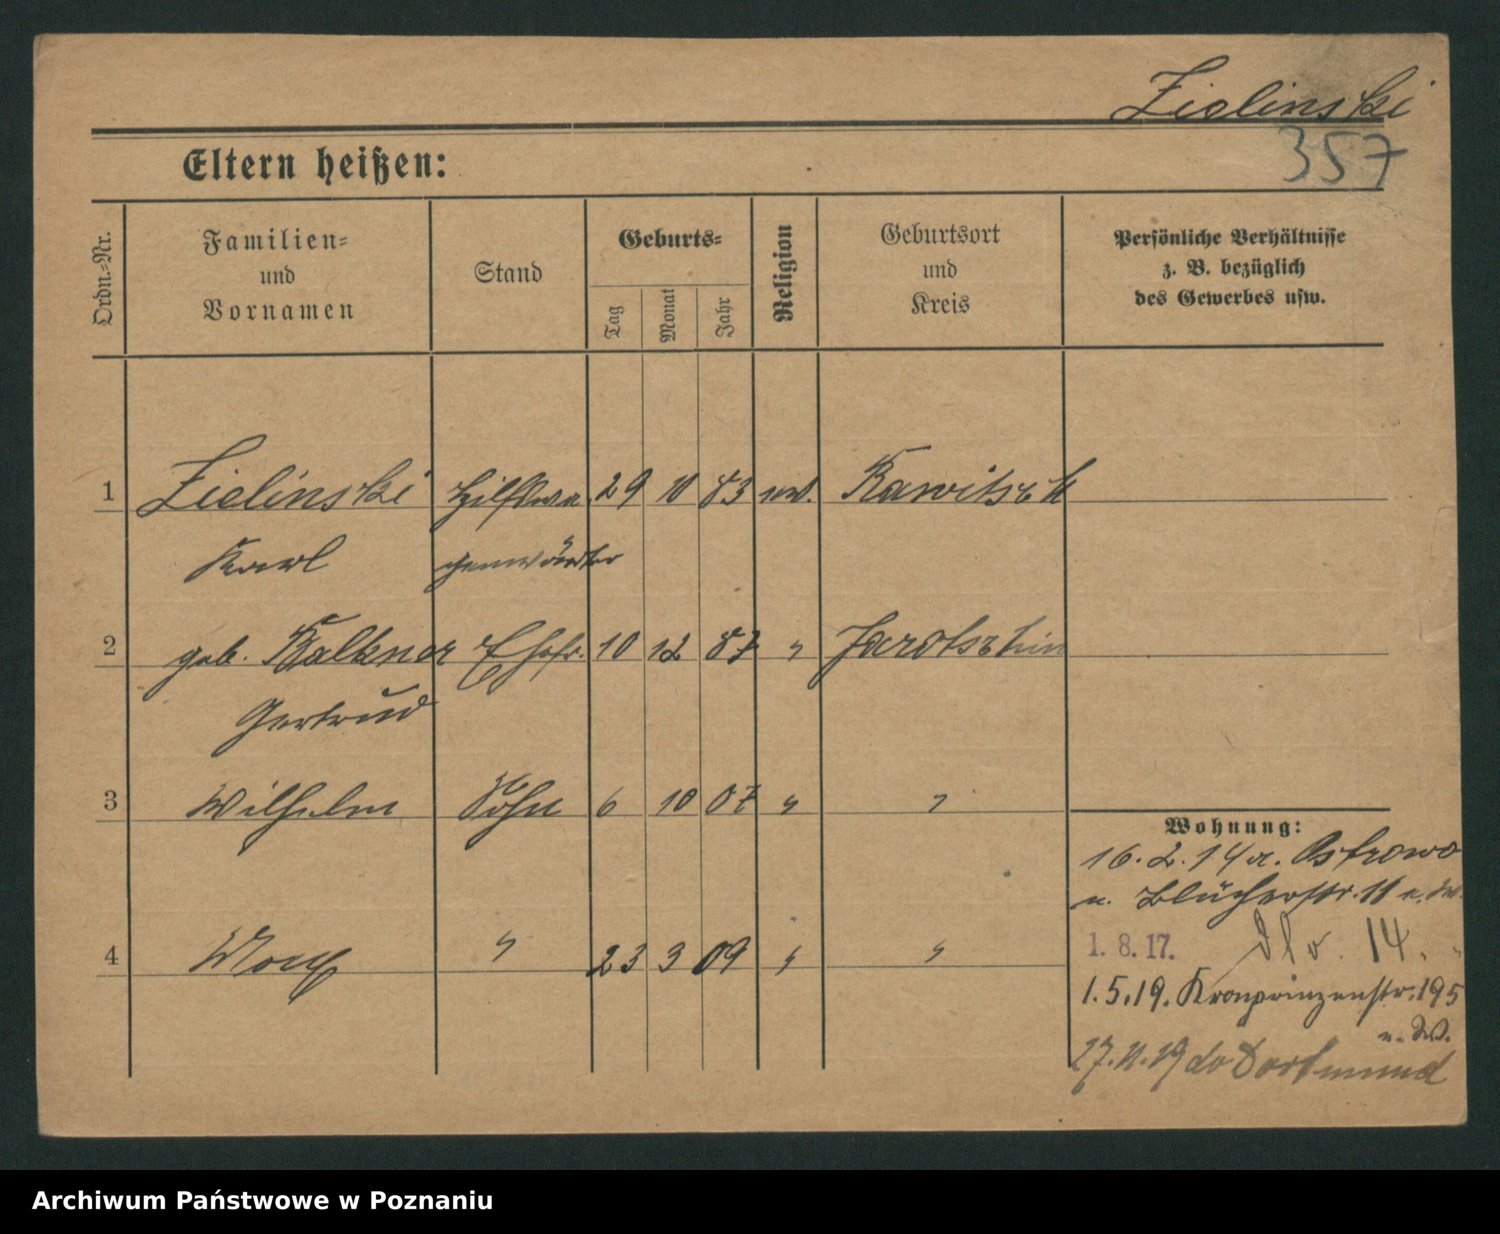 Zielinski
357
Eltern heißen:
Ordn.=Nr.
Familien=
und
Vornamen
Stand
Geburts=
Tag
Monat
Jahr
Religion
Geburtsort
und
Kreis
Persönliche Verhältnisse
z. B. bezüglich
des Gewerbes usw.
1 Zielinski Hilfswa 29 10 83 ev. Rawitsch
Karl genwärter
2 geb. Ehefr. 10 12 87 " Jarotschin
Gertrud
3 Wilhelm Sohn 6 10 07 " "
4 Max " 23 3 09 " "
Wohnung:
16.2.14 a. Ostrowo
n. Blücherstr. 11
1. 8. 17. 14.
1.5.19. Kronprinzenstr. 195
27.11.19 Dortmund
Archiwum Państwowe w Poznaniu